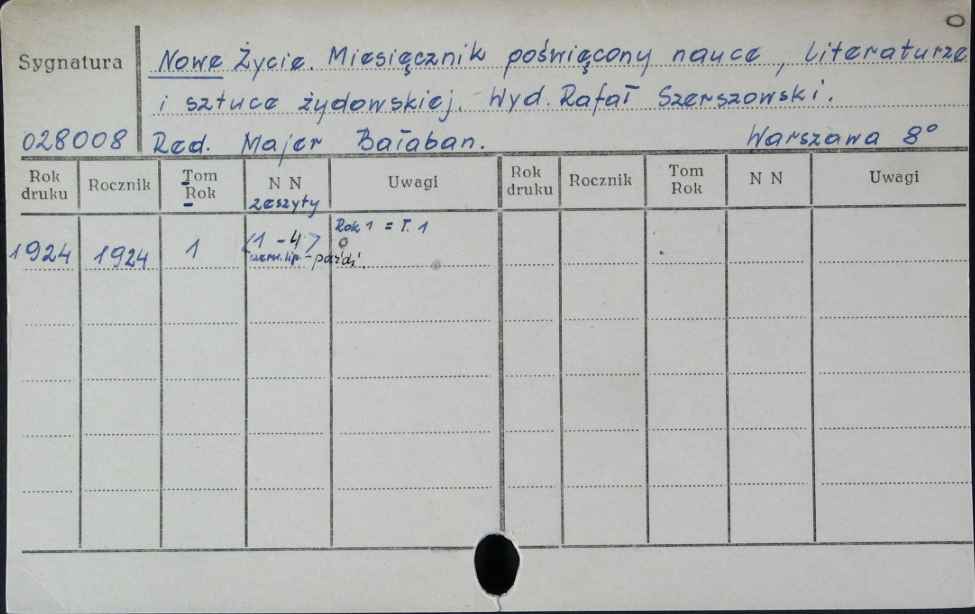 O
Sygnatura
Nowe Życie. Miesięcznik poświęcony nauce, literaturze
i sztuce żydowskiej. Wyd. Rafał Szerszowski.
028008 Red. Majer Bałaban. Warszawa 8°
Rok druku Rocznik Tom Rok N N zeszyty Uwagi Rok druku Rocznik Tom Rok N N Uwagi
1924 1924 1 <1-4> Rok 1 = T. 1
czerw. lip. - paźdź. O